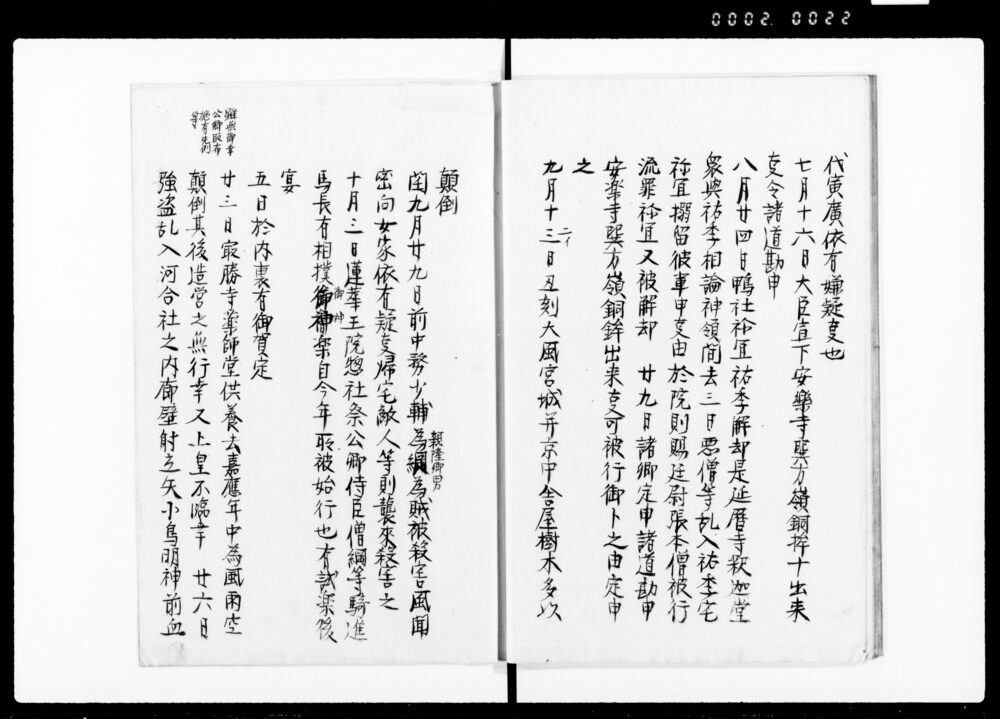 0002.0022
代寅廣依有嫌疑事也
七月十六日大臣宣下安樂寺巽方嶺銅鉾十出来
事令諸道勘申
八月廿四日鴨社祢宜祐季解却是延暦寺釈迦堂
衆與祐季相論神領間去三日悪僧等乱入祐季宅
祢宜搦留彼輩申事由於院則賜廷尉張本僧被行
流罪祢宜又被解却 廿九日諸卿定申諸道勘申
安楽寺巽方嶺銅鉾出来事可被行御卜之由定申
之
九月十三日丑刻大風宮城并京中舎屋樹木多以
二イ
顛倒
閏九月廿九日前中務少輔為綱為賊被殺害風聞
親隆卿男
密向女家依有疑事帰宅敵人等則襲来殺害之
十月三日蓮華王院惣社祭公卿侍臣僧綱等騎進
馬長有相撲御神楽自今年所被始行也有試楽後
御神
宴
五日於内裏有御賀定
廿三日最勝寺薬師堂供養去嘉應年中為風雨空
顛倒其後造営之無行幸又上皇不臨幸 廿六日
雖無御幸
公卿取布
施有先例
等
強盗乱入河合社之内廊壁射立矢小烏明神前血